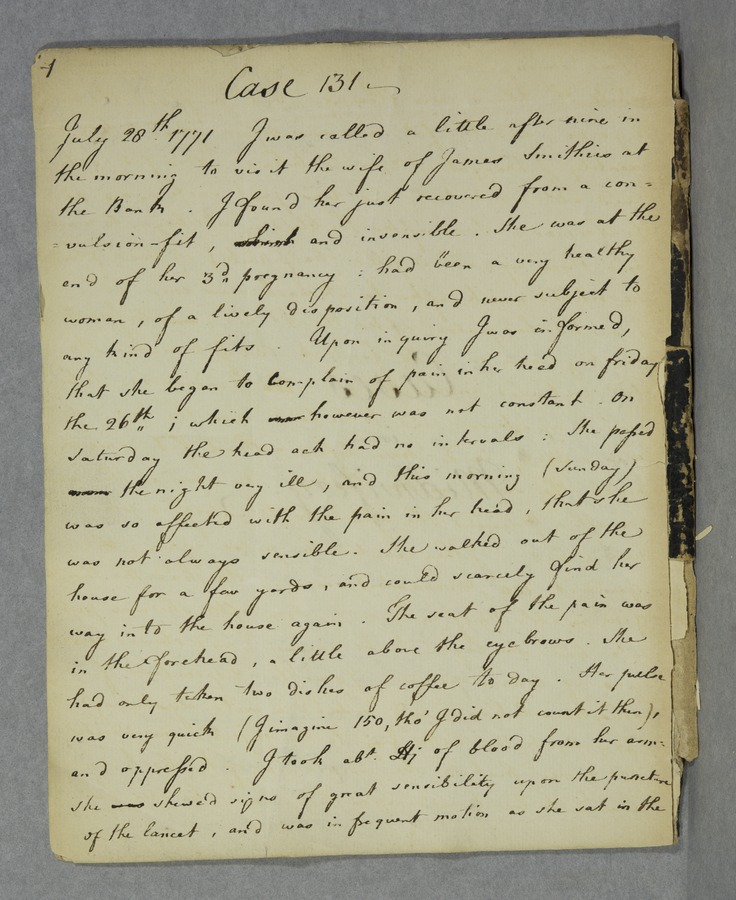 1
Case 131
July 28th. 1771 I was called a little after nine in
the morning to visit the wife of James Smithies at
the Bank. I found her just recovered from a con=
=vulsion-fit, and insensible. She was at the
end of her 3d. pregnancy: had been a very healthy
woman, of a lively disposition, and never subject to
any kind of fits. Upon inquiry I was informed,
that she began to complain of pain in her head on friday
the 26th; which however was not constant. On
saturday the head ach had no intervals: She passed
the night very ill, and this morning (sunday)
was so affected with the pain in her head, that she
was not always sensible. She walked out of the
house for a few yards, and could scarcely find her
way into the house again. The seat of the pain was
in the forehead, a little above the eyebrows. She
had only taken two dishes of coffee to day. Her pulse
was very quick (I imagine 150, tho' I did not count it then),
and oppressed. I took abt. of blood from her arm:
she shewed signs of great sensibility upon the puncture
of the lancet, and was in frequent motion as she sat in the